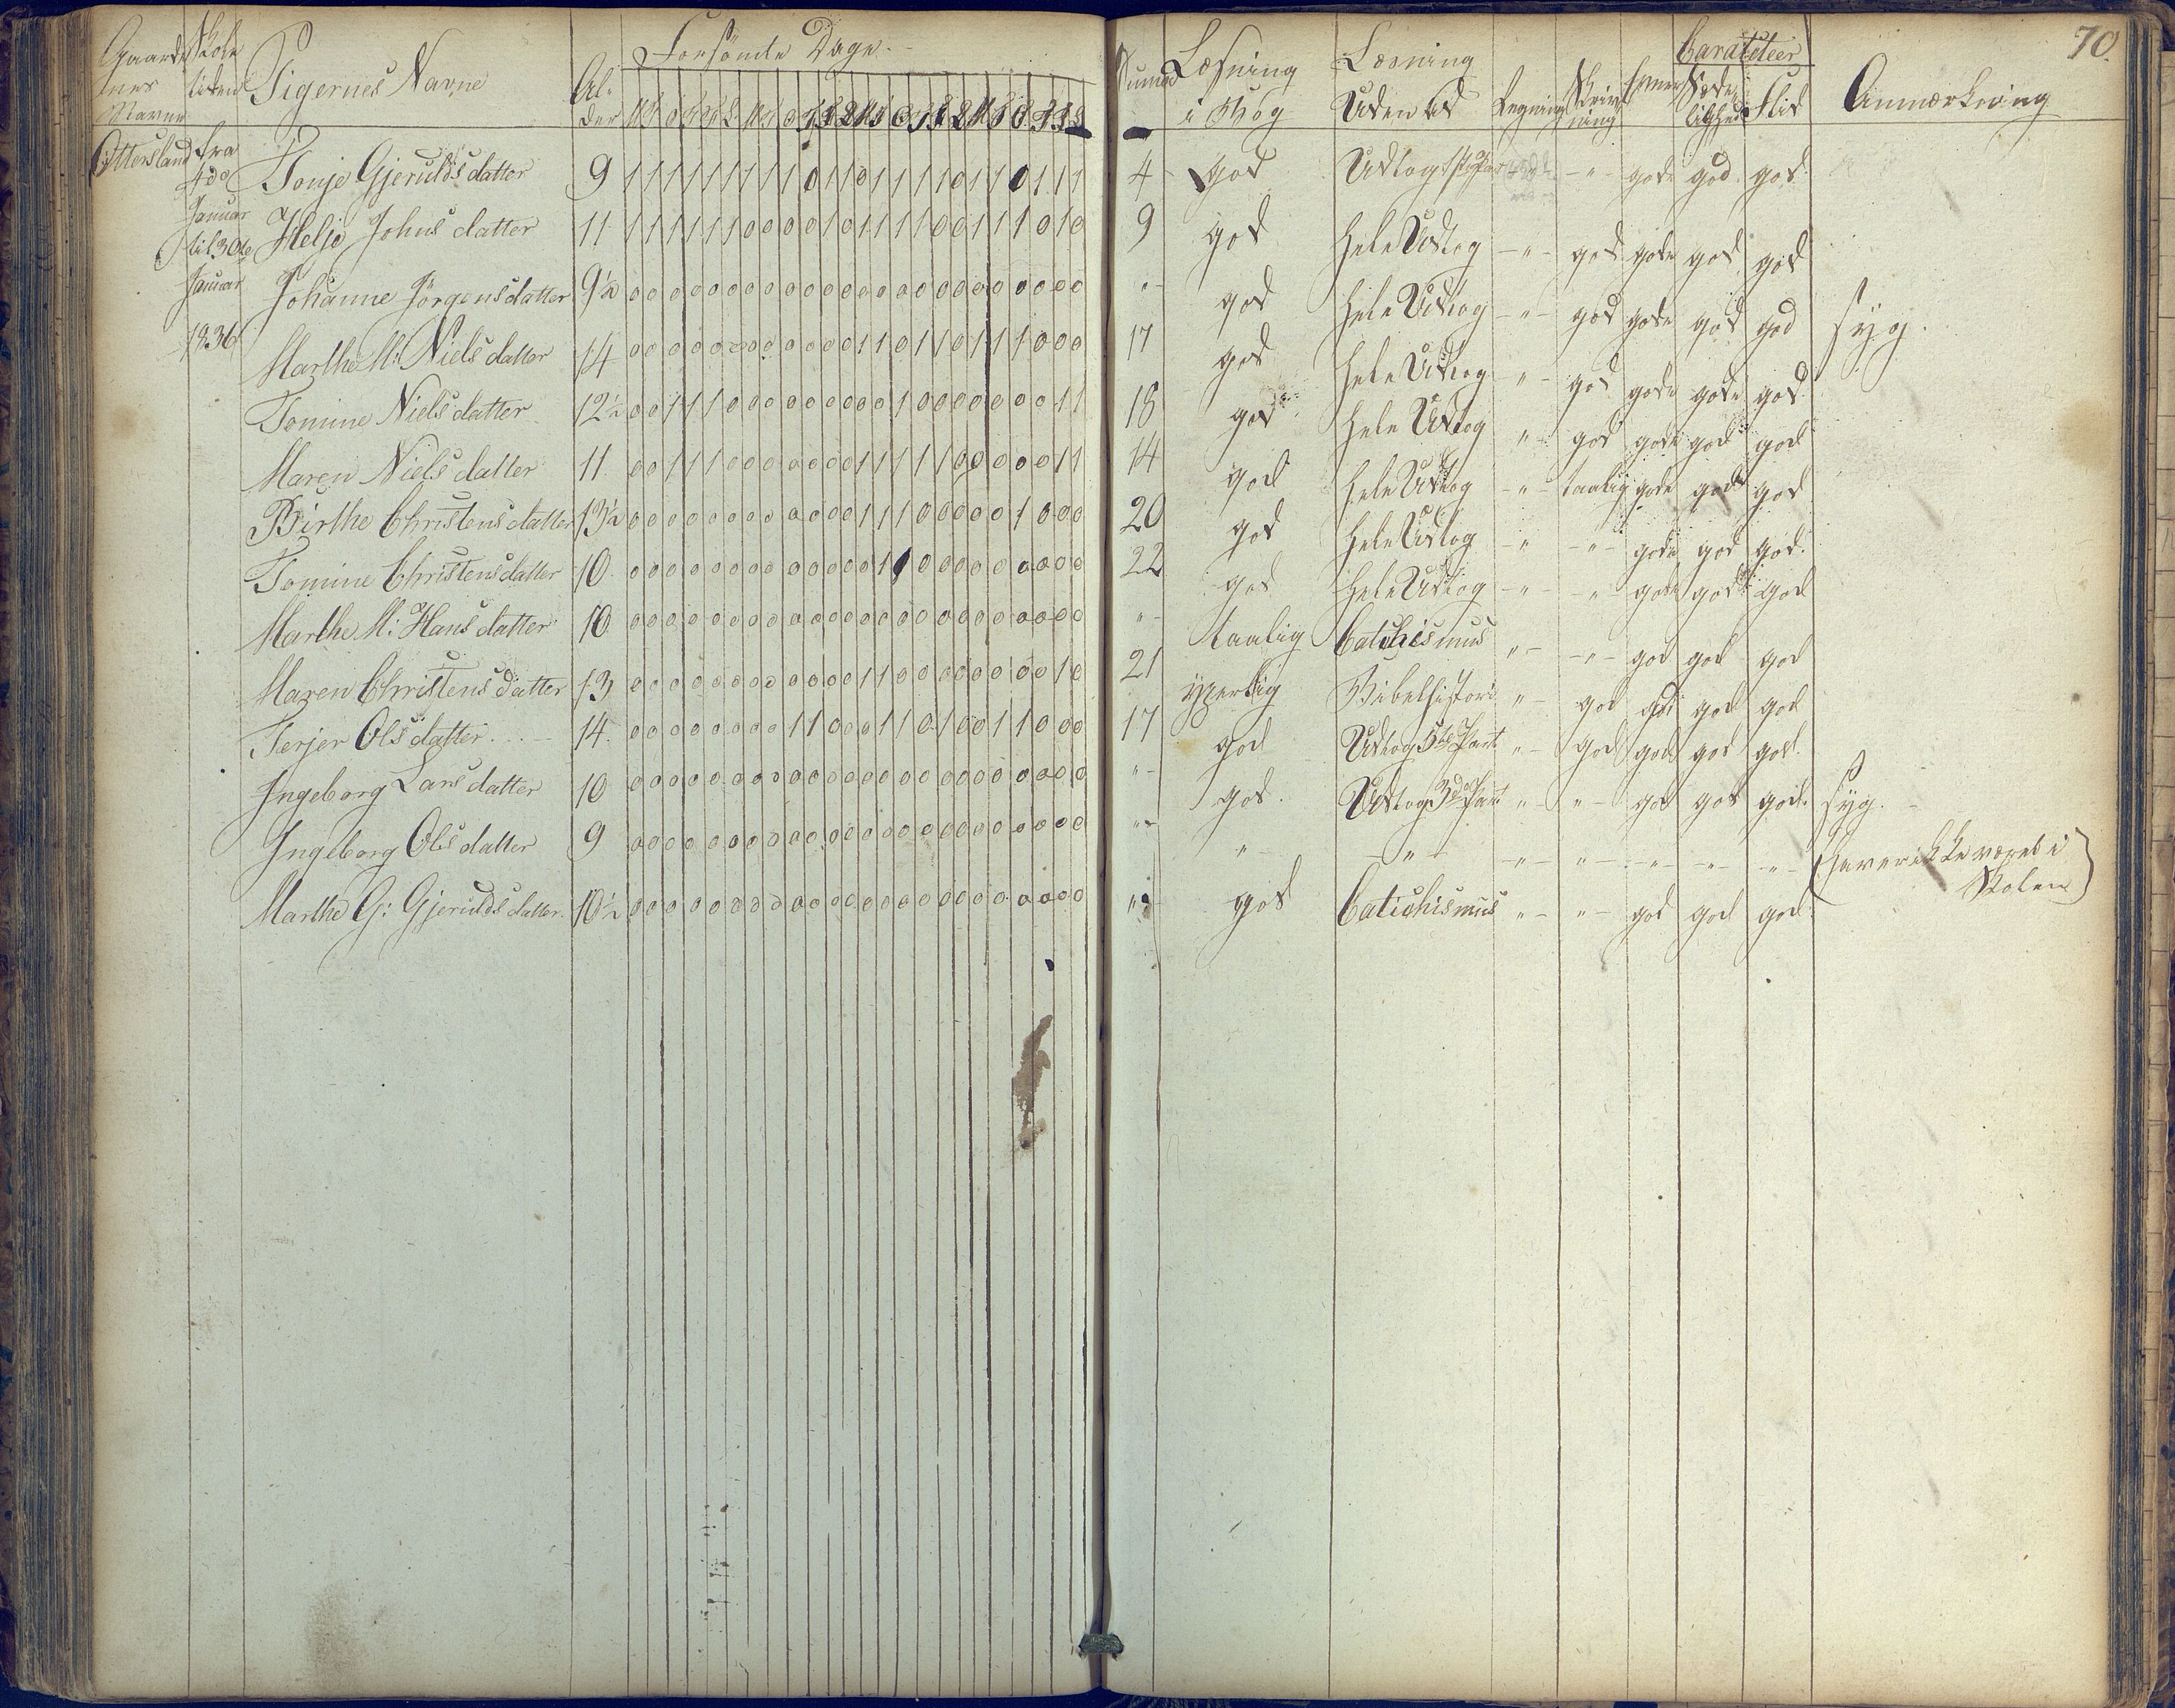 70.
Gaarde Skole Pigernes Navne Al- Forsömte Dage. Læsning Læsning Caracteer
nes tiden der i Bog Uden ad Regning Skriv Evner Sæde Flid Anmærkning
Navne ning lighed
Ottersland fra Tonje Gjerulds datter 9 1 1 1 1 1 1 1 1 1 0 1 1 0 1 1 1 1 0 1 1 0 1 1 1 4 god Udtog - " - gode god god
4do
Januar Helje Johns datter 11 1 1 1 1 1 1 0 0 0 0 1 0 1 1 1 1 0 0 1 1 1 0 1 0 9 god hele Udtog - " - god gode god god
til 30te
Januar Johanne Jörgensdatter 9½ 0 0 0 0 0 0 0 0 0 0 0 0 0 0 0 0 0 0 0 0 0 0 0 0 " - god hele Udtog - " - god gode god god syg.
1836 Marthe M: Niels datter 14 0 0 0 0 0 0 0 0 0 0 0 0 1 1 0 1 1 0 1 1 1 0 0 0 17 god hele Udtog " - god gode gode god
Tomine Niels datter 12½ 0 0 1 1 1 0 0 0 0 0 0 0 0 0 1 0 0 0 0 0 0 0 1 1 18 god hele Udtog " - god gode god god
Maren Niels datter 11 0 0 1 1 1 0 0 0 0 0 0 0 1 1 1 1 1 0 0 0 0 0 1 1 14 god hele Udtog - " - taalig gode god god
Birthe Christens datter 13½ 0 0 0 0 0 0 0 0 0 0 0 0 1 1 1 0 0 0 0 0 1 0 0 0 20 god hele Udtog - " - " - gode god god
Tomine Christensdatter 10 0 0 0 0 0 0 0 0 0 0 0 0 0 1 1 0 0 0 0 0 0 0 0 0 22 god hele Udtog - " - " - gode god god
Marthe M: Hans datter 10 0 0 0 0 0 0 0 0 0 0 0 0 0 0 0 0 0 0 0 0 0 0 0 0 " - taalig Catichismus " - - " - god god god
Maren Christens datter 13 0 0 0 0 0 0 0 0 0 0 0 0 1 1 0 0 0 0 0 0 0 0 1 0 21 ypperlig Bibelhistori " - god god god god
Terjer Ols datter 14 0 0 0 0 0 0 0 0 1 1 0 0 0 1 1 0 1 0 0 1 1 0 0 0 17 god Udtog 5te Part " - god god god god
Ingeborg Lars datter 10 0 0 0 0 0 0 0 0 0 0 0 0 0 0 0 0 0 0 0 0 0 0 0 0 " - god Udtog 3die Part " - " - god god gode syg.
Ingeborg Ols datter 9 0 0 0 0 0 0 0 0 0 0 0 0 0 0 0 0 0 0 0 0 0 0 0 0 " - " - - " - - " - " - - " - - " - - " - (haver ikke været i
Skolen)
Marthe G: Gjerulds datter 10½ 0 0 0 0 0 0 0 0 0 0 0 0 0 0 0 0 0 0 0 0 0 0 0 0 " god Catichismus " - " - god god god